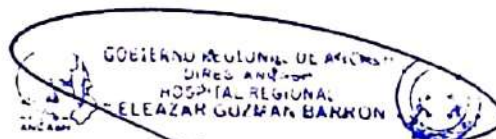 GOBIERNO REGIONAL DE ANCASH
DIRES ANCASH
HOSPITAL REGIONAL
ELEAZAR GUZMAN BARRON
ANCASH